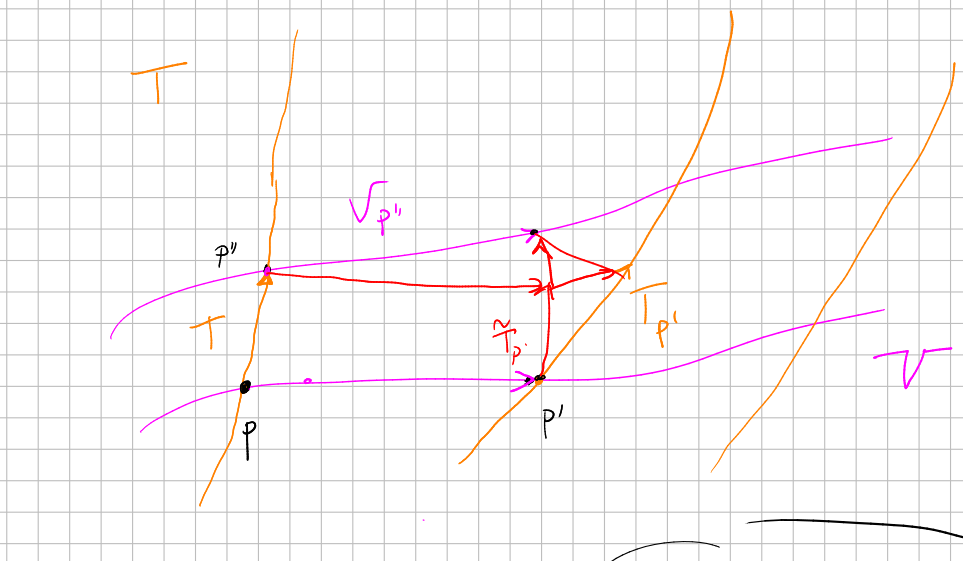 T
V_p''
p''
T
T̃_p'
T_p'
V
p
p'